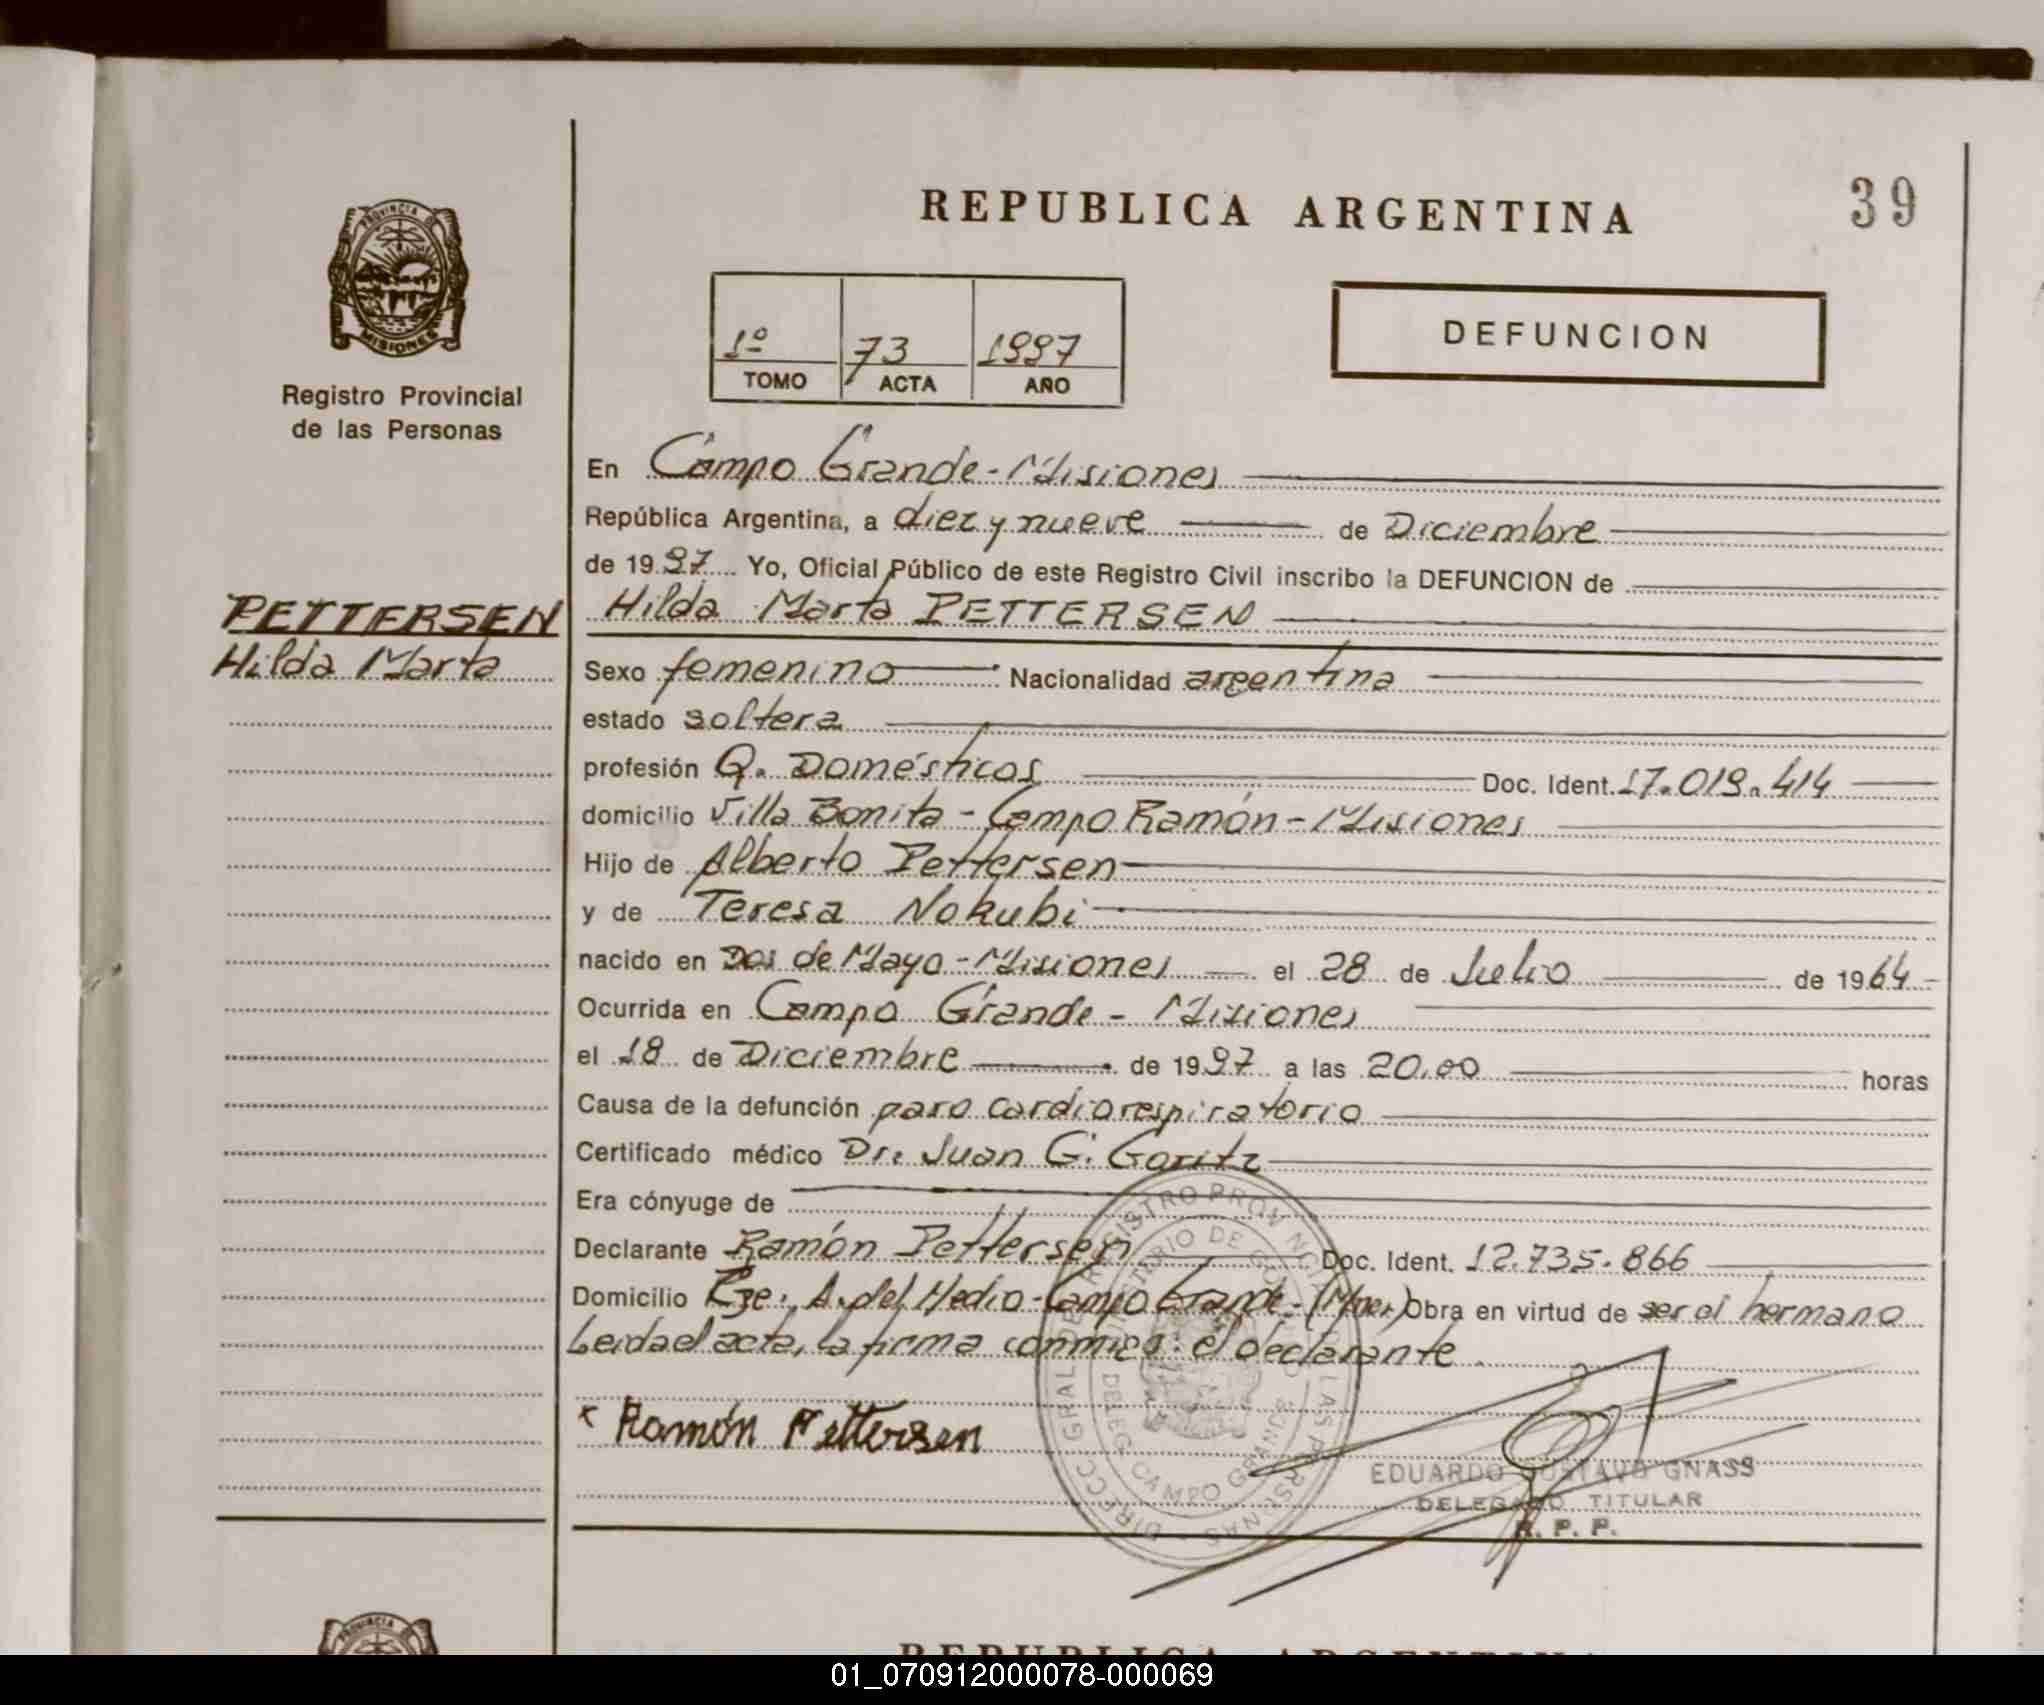 REPUBLICA ARGENTINA
39
PROVINCIA DE
MISIONES
Registro Provincial
de las Personas
1º 73 1997
TOMO ACTA AÑO
DEFUNCION
En Campo Grande - Misiones
República Argentina, a diez y nueve de Diciembre
de 1997 Yo, Oficial Público de este Registro Civil inscribo la DEFUNCION de
PETTERSEN
Hilda Marta
Hilda Marta PETTERSEN
Sexo femenino Nacionalidad argentina
estado soltera
profesión Q. Domésticos Doc. Ident. 17.019.414
domicilio Villa Bonita - Campo Ramón - Misiones
Hijo de Alberto Pettersen
y de Teresa Nokubi
nacido en Dos de Mayo - Misiones el 28 de Julio de 1964
Ocurrida en Campo Grande - Misiones
el 18 de Diciembre de 1997 a las 20,00 horas
Causa de la defunción paro cardiorespiratorio
Certificado médico Dr. Juan G. Goritz
Era cónyuge de
Declarante Ramón Pettersen Doc. Ident. 12.735.866
Domicilio A. del Medio - Campo Grande - (Mnes) Obra en virtud de ser el hermano
Leida el acta, la firma conmigo: el declarante
x Ramón Pettersen
DIRECC. GRAL. DE REGISTRO PROVINCIAL DE LAS PERSONAS
MINISTERIO DE GOBIERNO
DELEG. CAMPO GRANDE
EDUARDO GUSTAVO GNASS
DELEGADO TITULAR
R. P. P.
PROVINCIA DE
REPUBLICA ARGENTINA
01_070912000078-000069